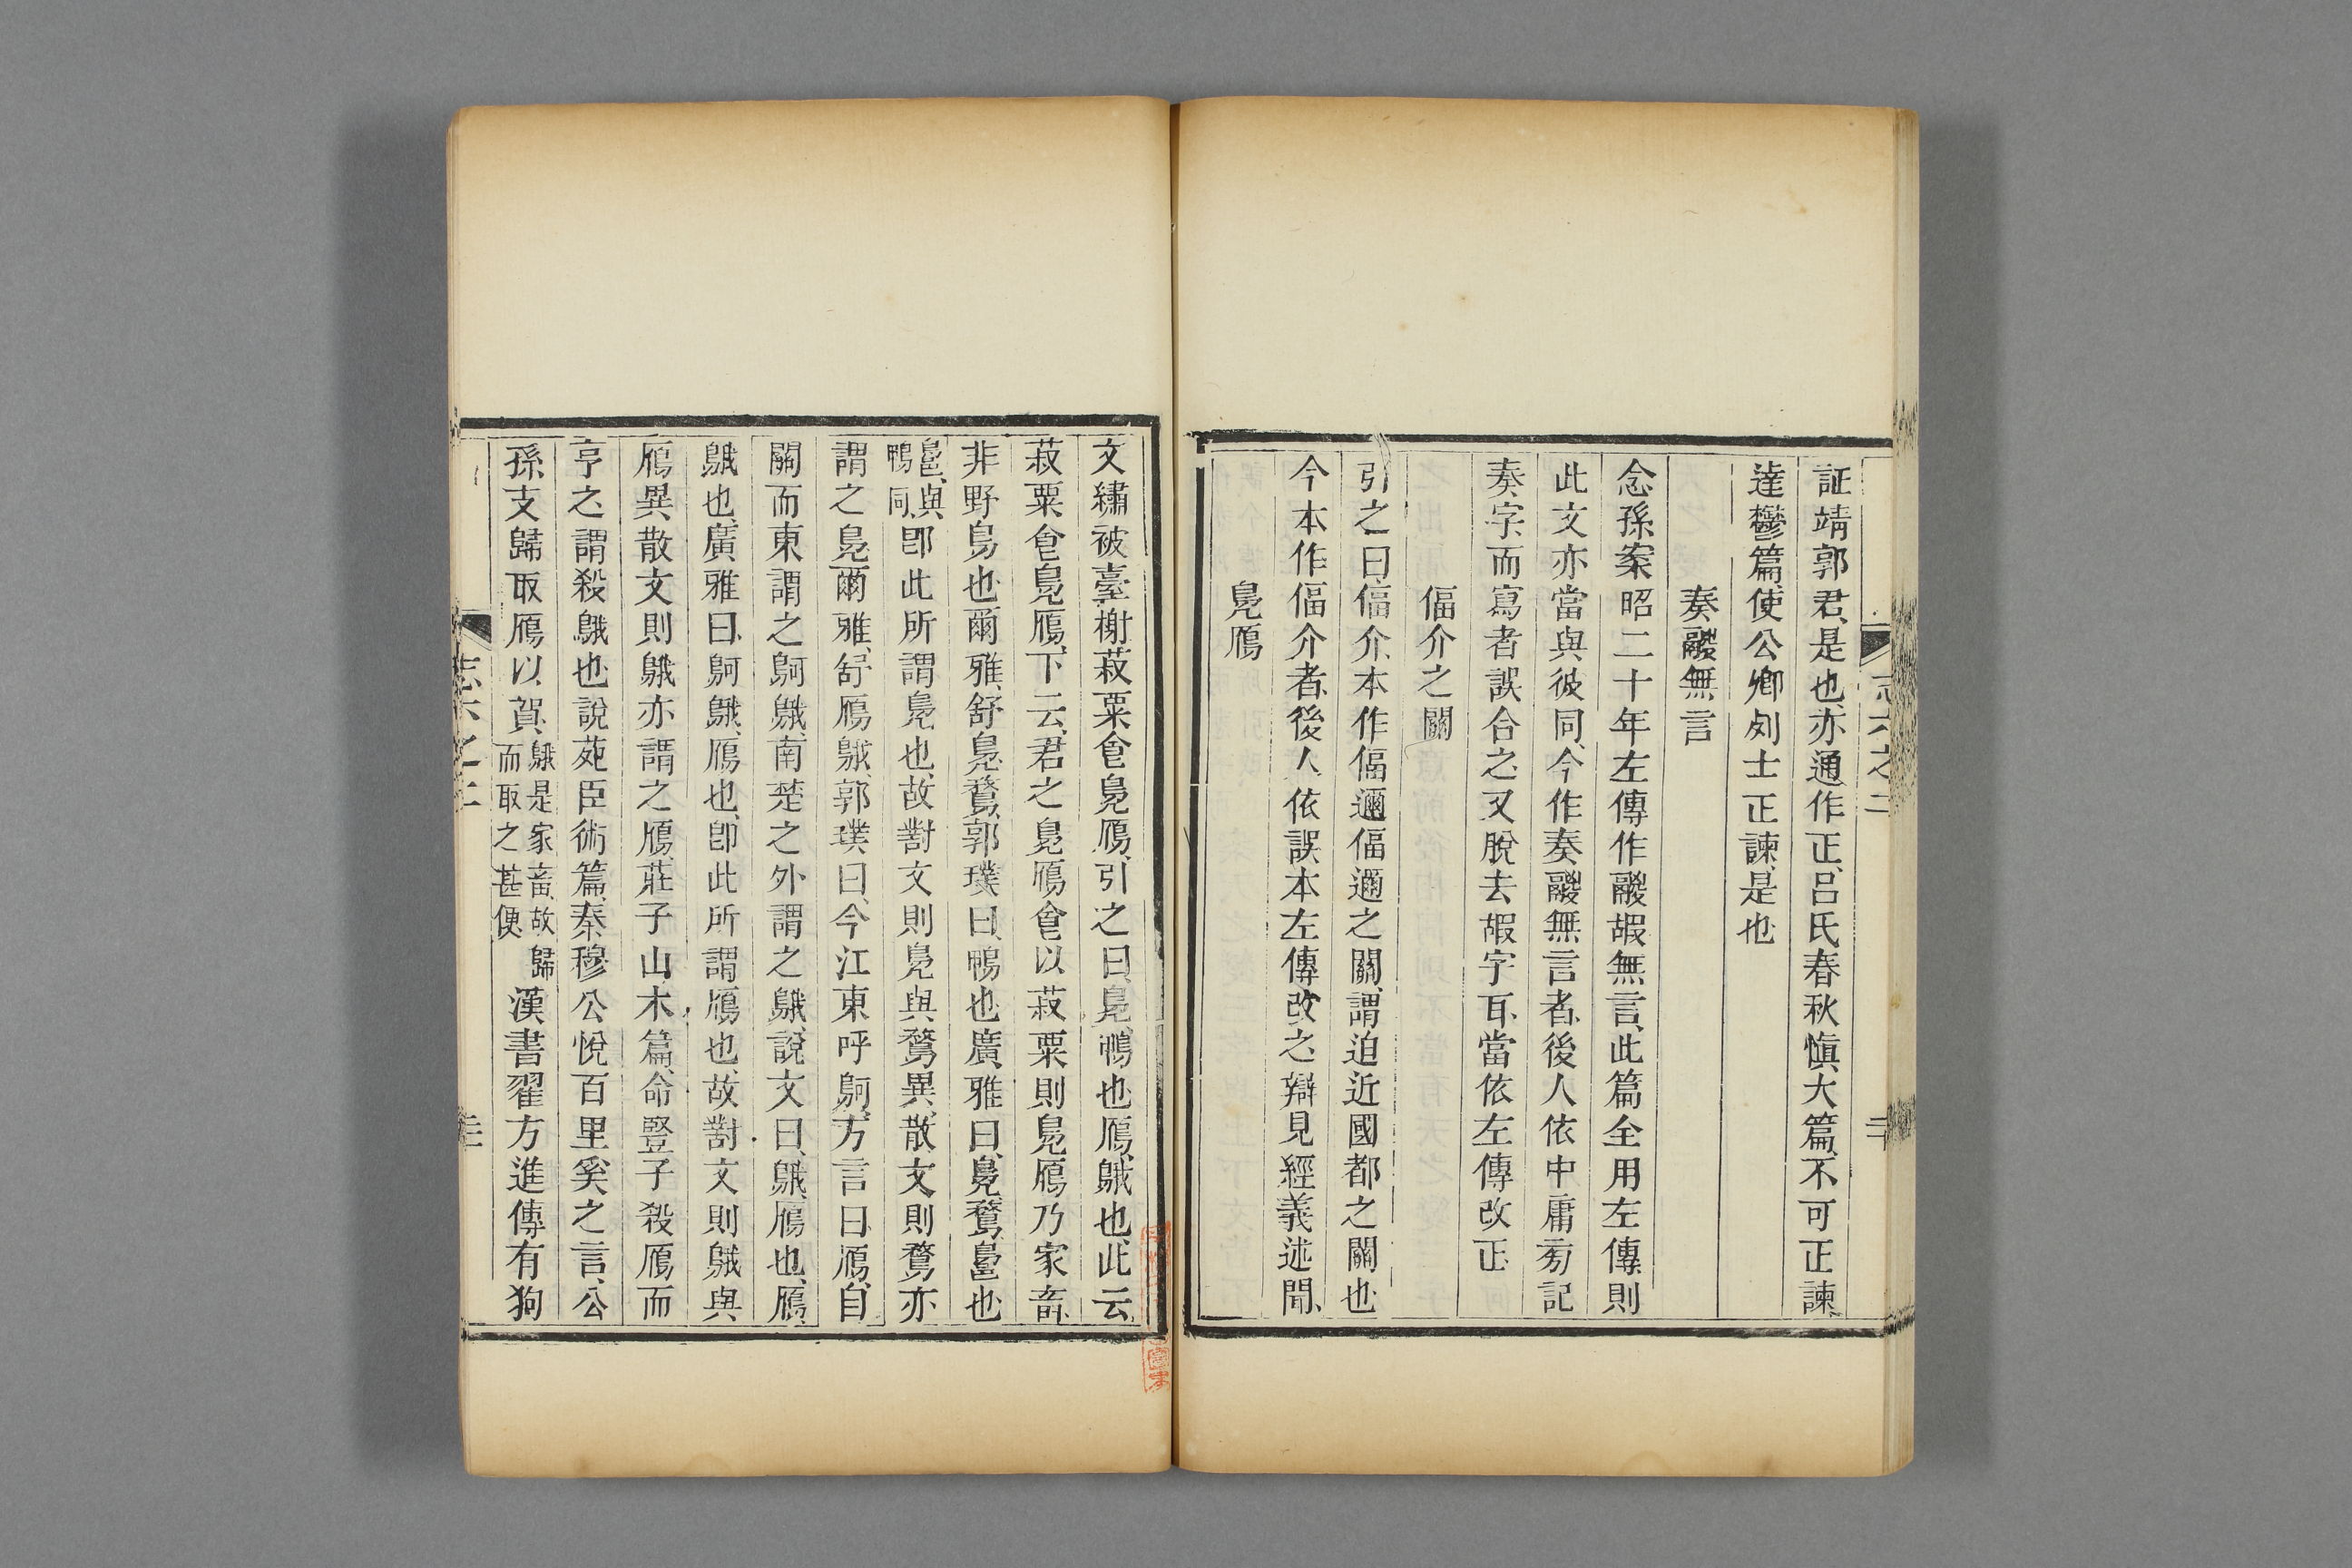 証靖郭君是也亦通作正呂氏春秋愼大篇不可正諫
達鬱篇使公卿列士正諫是也
奏鬷無言
念孫案昭二十年左傳作鬷嘏無言此篇全用左傳則
此文亦當與彼同今作奏鬷無言者後人依中庸旁記
奏字而寫者誤合之又脫去嘏字耳當依左傳改正
偪介之關
引之曰偪介本作偪邇偪邇之關謂迫近國都之關也
今本作偪介者後人依誤本左傳改之辯見經義述聞
鳧鴈
文繡被臺榭菽粟食鳧鴈引之曰鳧鴨也鴈䳘也此云
菽粟食鳧鴈下云君之鳧鴈食以菽粟則鳧鴈乃家畜
非野鳥也爾雅舒鳧鶩郭璞曰鴨也廣雅曰鳧鶩䳕也
䳕與鴨同卽此所謂鳧也故對文則鳧與鶩異散文則鶩亦
謂之鳧爾雅舒鴈䳘郭璞曰今江東呼鴚方言曰鴈自
關而東謂之鴚䳘南楚之外謂之䳘說文曰䳘鴈也鴈
䳘也廣雅曰鴚䳘鴈也卽此所謂鴈也故對文則䳘與
鴈異散文則䳘亦謂之鴈莊子山木篇命豎子殺鴈而
亨之謂殺䳘也說苑臣術篇秦穆公悅百里奚之言公
孫支歸取鴈以賀䳘是家畜故歸而取之甚便漢書翟方進傳有狗
志六之二